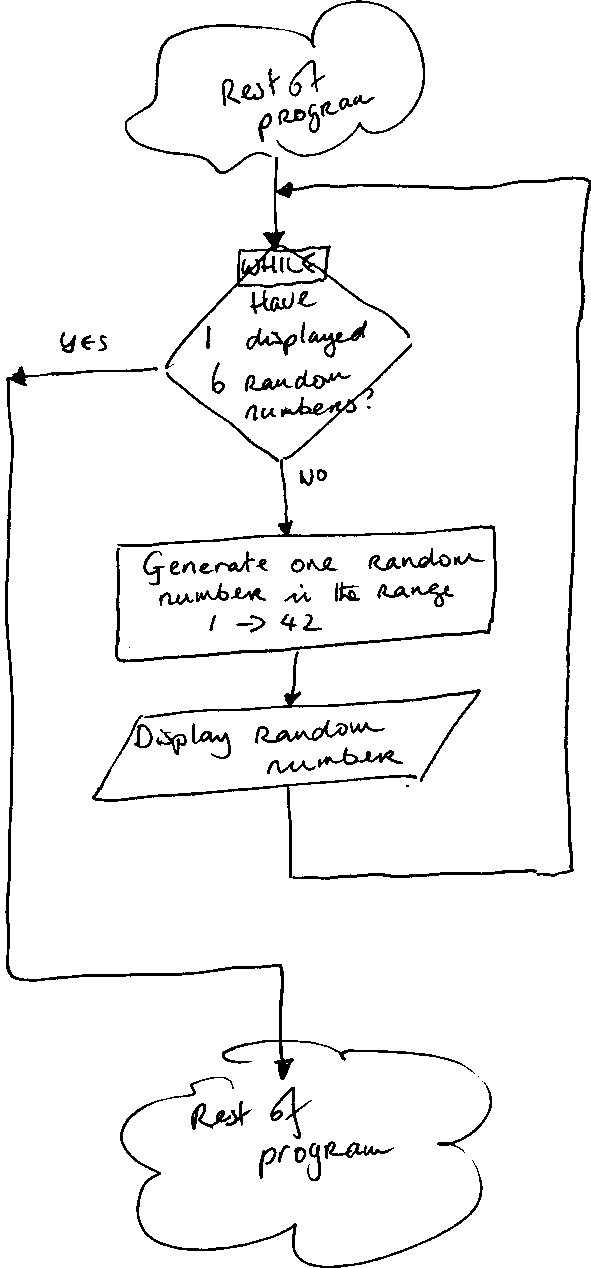 Rest of
program
WHILE
Have
I displayed
6 random
numbers?
YES
NO
Generate one random
number in the range
1 → 42
Display random
number
Rest of
program